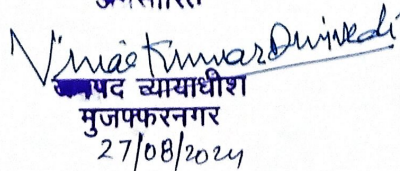 Vinac Kumar Dwivedi
जनपद न्यायाधीश
मुजफ्फरनगर
27/08/2024